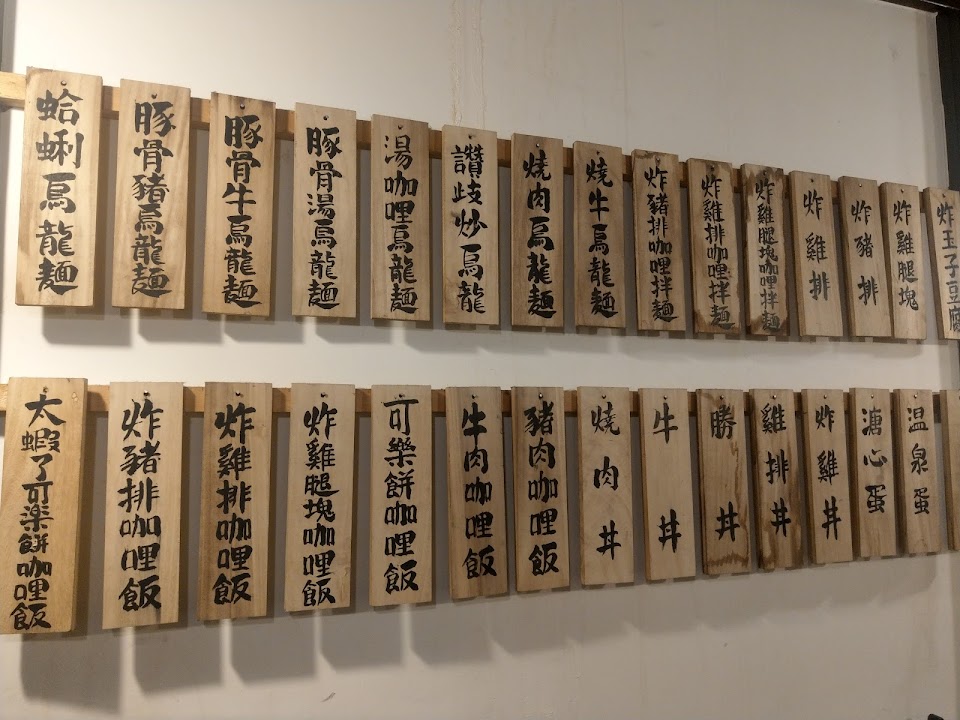 蛤蜊烏龍麵
豚骨豬烏龍麵
豚骨牛烏龍麵
豚骨湯烏龍麵
湯咖哩烏龍麵
讚歧炒烏龍
燒肉烏龍麵
燒牛烏龍麵
炸豬排咖哩拌麵
炸雞排咖哩拌麵
炸雞腿塊咖哩拌麵
炸雞排
炸豬排
炸雞腿塊
炸玉子豆腐
太蝦了可楽餅咖哩飯
炸豬排咖哩飯
炸雞排咖哩飯
炸雞腿塊咖哩飯
可樂餅咖哩飯
牛肉咖哩飯
豬肉咖哩飯
燒肉丼
牛丼
勝丼
雞排丼
炸雞丼
溏心蛋
温泉蛋